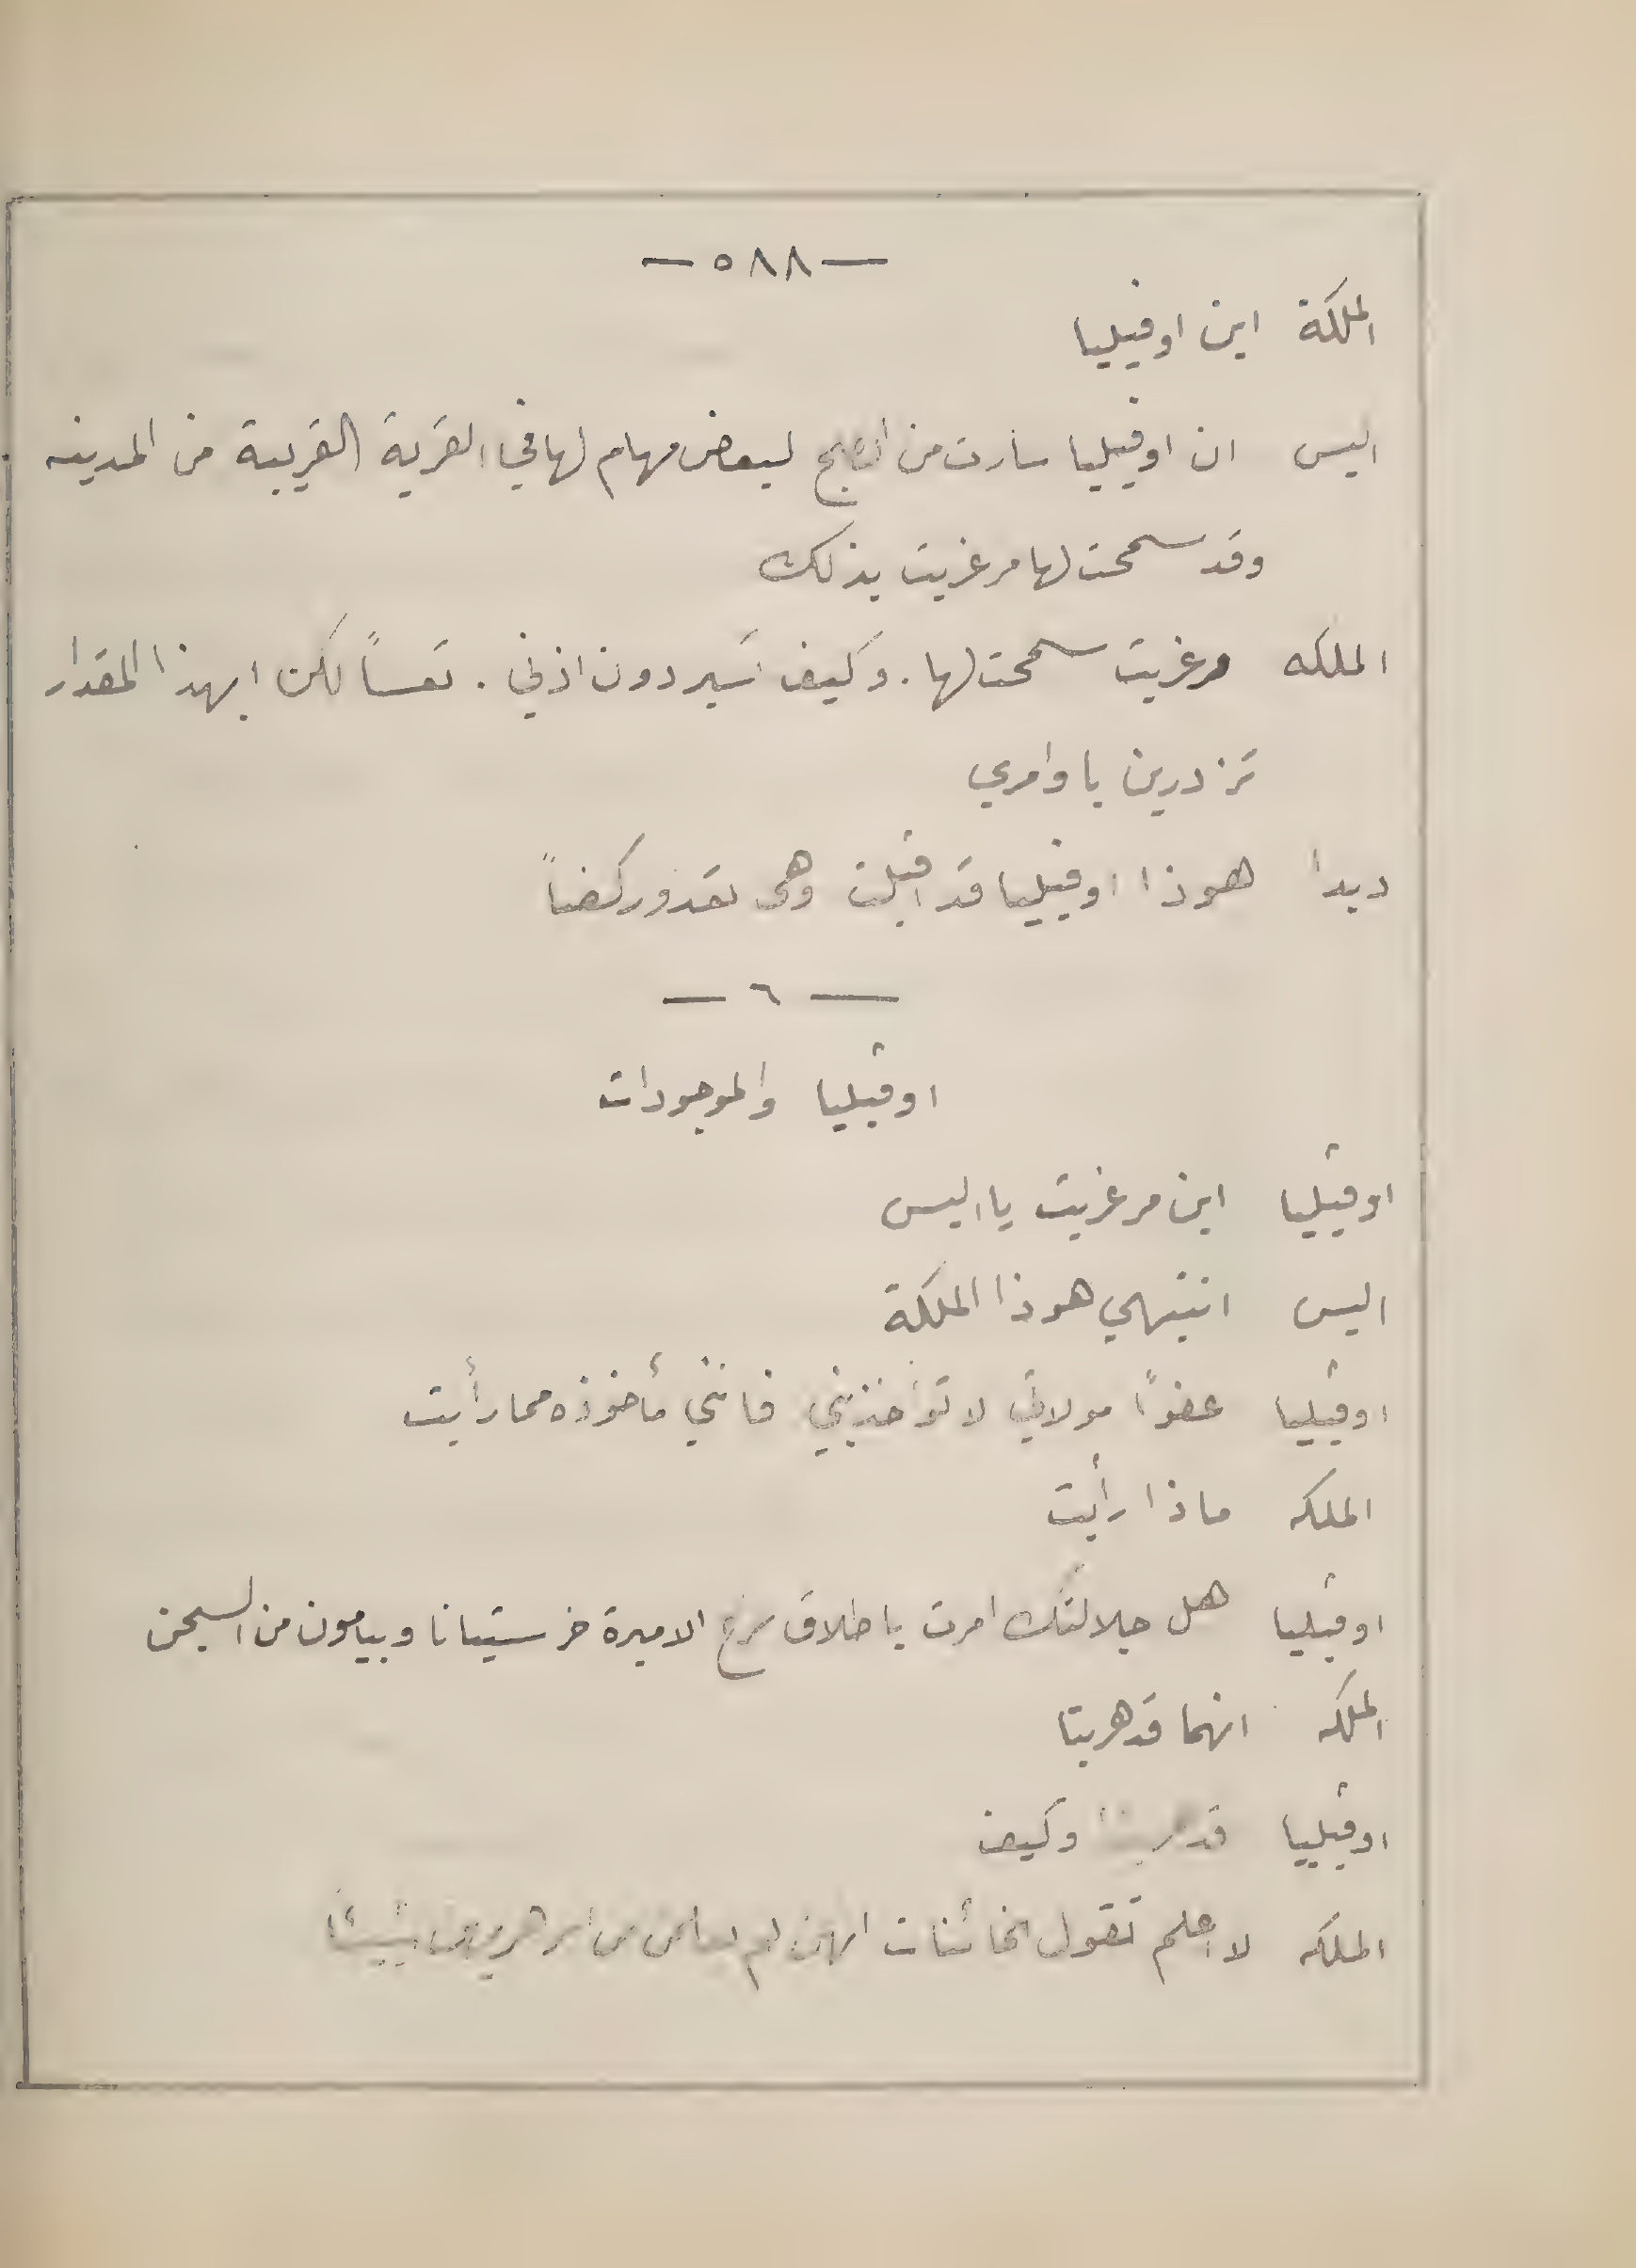 — ٥٨٨ —
الملكة اين اوفيليا
اليس ان اوفيليا سارت من الصبح لبعض مهام لها في القرية القريبة من المدينه
وقد سمحت لها مرغريت بذلك
الملكه مرغريت سمحت لها . وكيف تسير دون اذني . تعساً لكن ابهذا المقدار
تزدرين باوامري
ديدا هوذا اوفيليا قد اقبلت وهي تعدو ركضاً
— ٦ —
اوفيليا والموجودات
اوفيليا اين مرغريت يا اليس
اليس انتبهي هوذا الملكة
اوفيليا عفواً مولاتي لا تؤاخذيني فانني مأخوذه مما رأيت
الملكه ماذا رأيت
اوفيليا هل جلالتك امرت باطلاق سرح الاميرة خرستيانا وبيامون من السجن
الملكه انهما قد هربتا
اوفيليا قد هربتا وكيف
الملكه لا اعلم تقول الخائنات انهن لم يعلمن من امر هربهن شيئاً